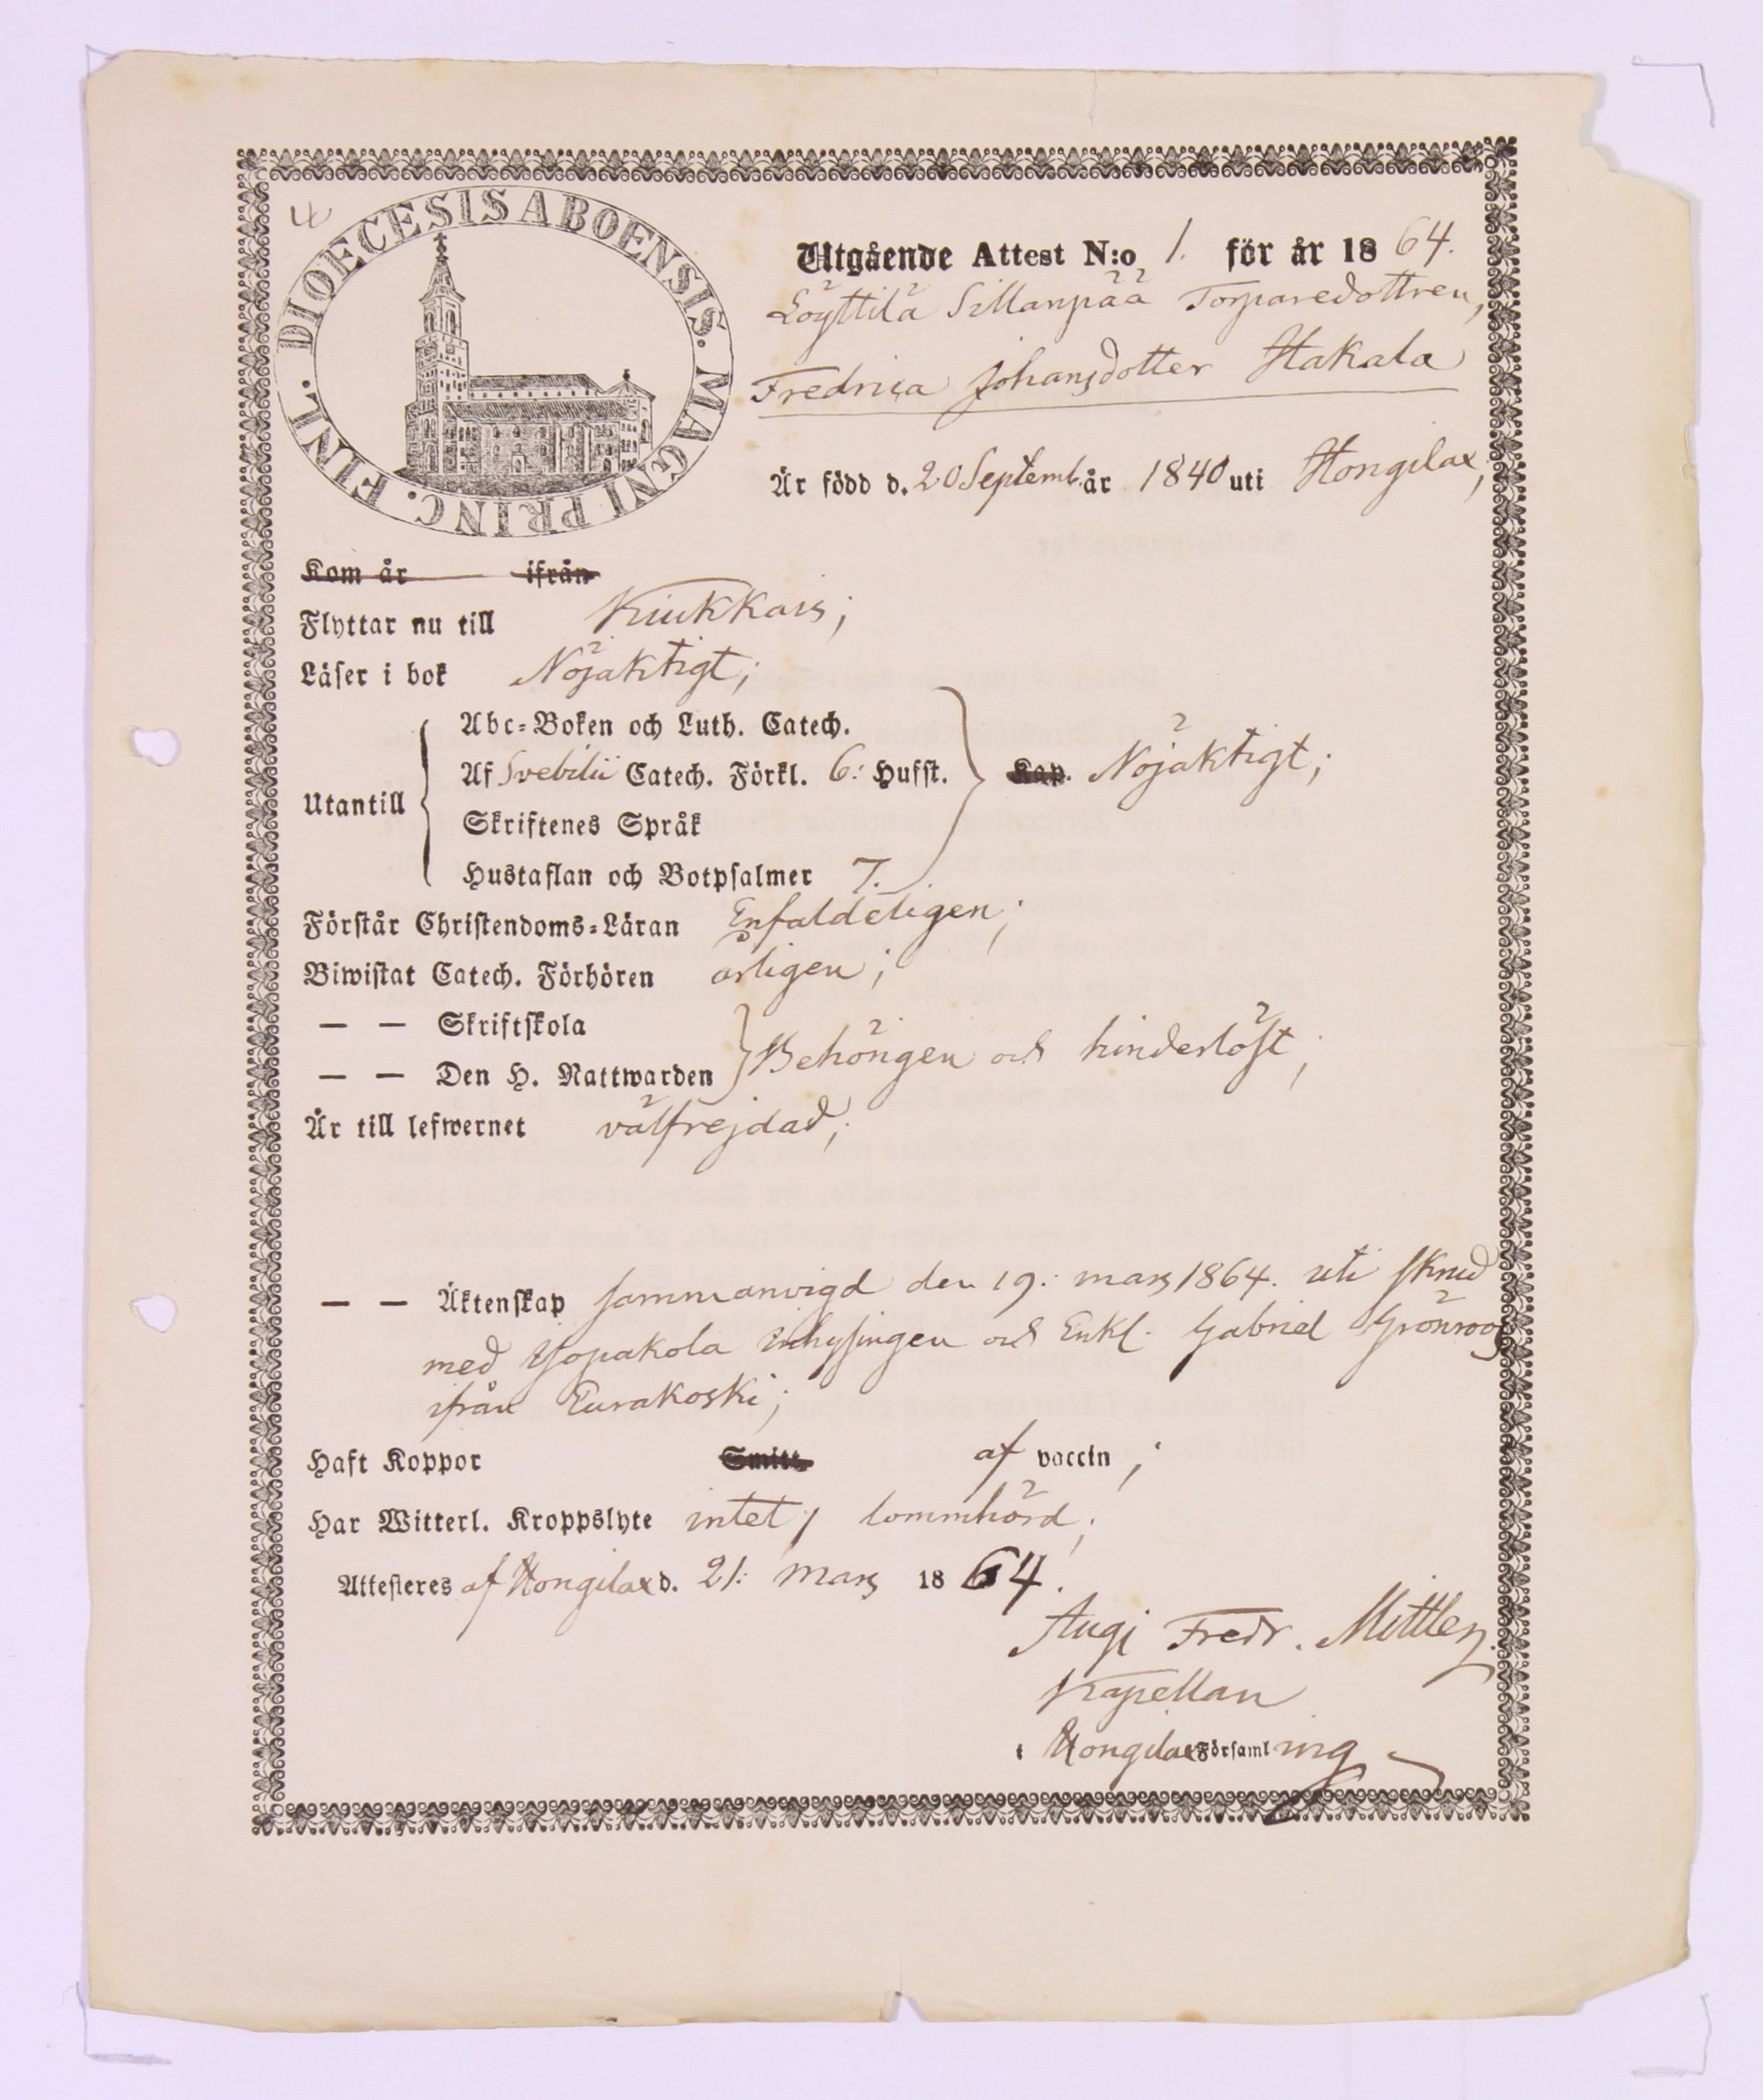 4
DIOECESIS ABOENSIS. MAGNI PRINC. FINL.
Utgående Attest N:o 1. för år 1864.
Löyttilä Sillanpää Torparedottren,
Fredrica Johansdotter Hakala
Är född d. 20 Septemb. år 1840 uti Hongilax,
Kom år ifrån
Flyttar nu till Kiukkais;
Läser i bok Nöjaktigt;
Utantill
Abc-Boken och Luth. Catech.
Af Svebilii Catech. Förkl. 6: Hufst.
Skriftenes Språk
Hustaflan och Botpsalmer 7.
Kap. Nöjaktigt;
Förstår Christendoms-Läran Enfaldeligen;
Biwistat Catech. Förhören årligen;
— — Skriftskola
— — Den H. Nattwarden
Behörigen och hinderlöst;
Är till lefwernet välfrejdad;
— — Äktenskap sammanvigd den 19: mars 1864. uti skrud
med inhysingen och Enkl. Gabriel Grönroos
ifrån Eurakoski;
Haft Koppor Smitt. af vaccin;
Har Witterl. Kroppslyte intet; lommhörd;
Attesteres af Hongilax d. 21: mars 1864.
Fredr.
Kapellan
i Hongilax Församling